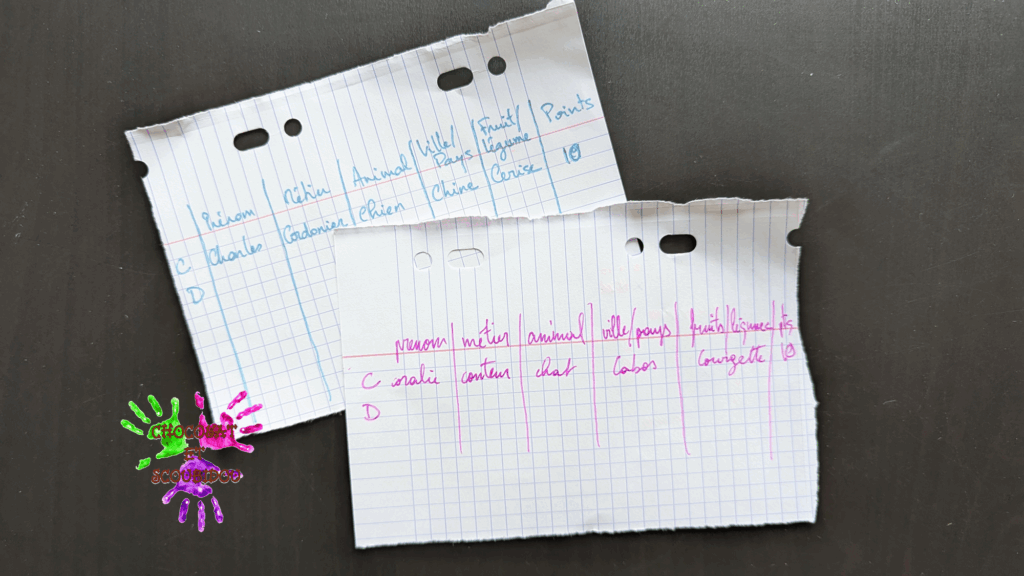 Prénom | Métier | Animal | Ville/Pays | Fruit/légume | Points
C | Charles | Cordonier | Chien | Chine | Cerise | 10
D
prenom | métier | animal | ville/pays | fruits/légumes | pts
C | oralie | conteur | chat | Cabos | Courgette | 10
D
CHOCOLAT
ET
SCOUBIDOU